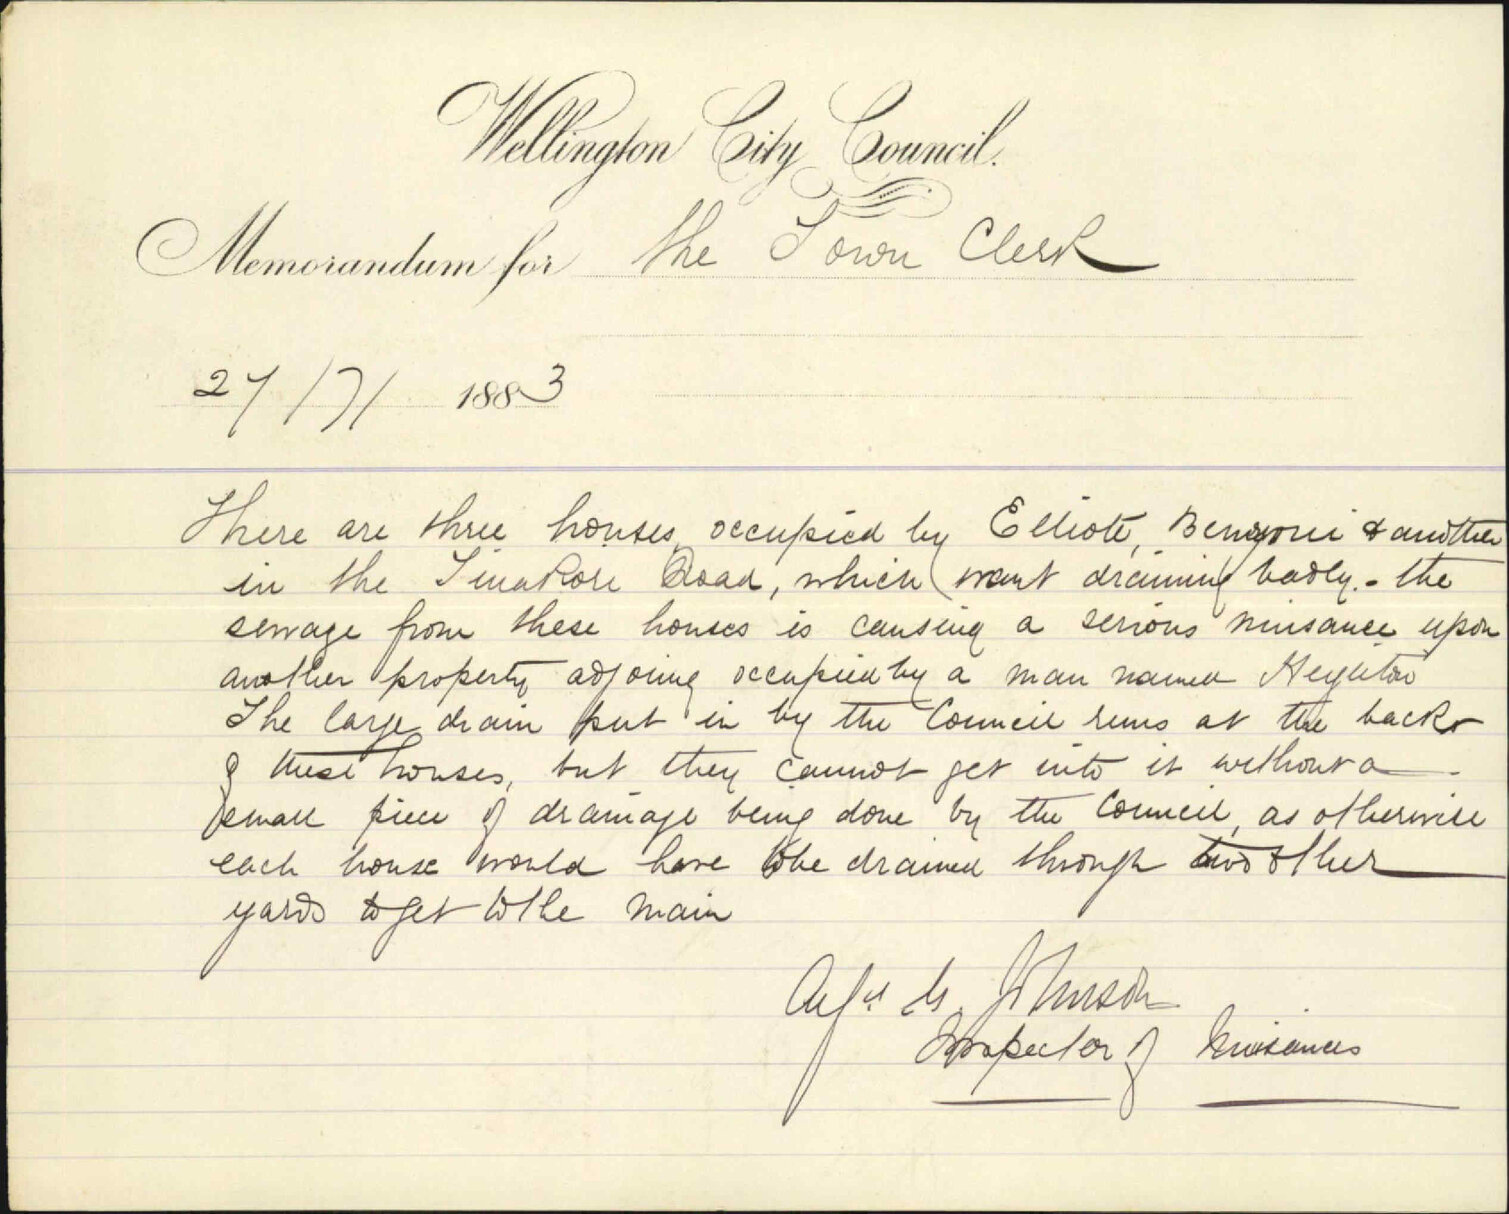 Wellington City Council.
Memorandum for the Town Clerk
27/7/ 1883
There are three houses, occupied by Elliott, & another
in the Tinakori Road, which want draining badly. - the
sewage from these houses is causing a serious nuisance upon
another property adjoing occupied by a man named
The large drain put in by the Council runs at the back
of these houses, but they cannot get into it without a
small piece of drainage being done by the Council, as otherwise
each house would have to be drained through two other
yards to get to the main
Johnson
Inspector of Nuisances